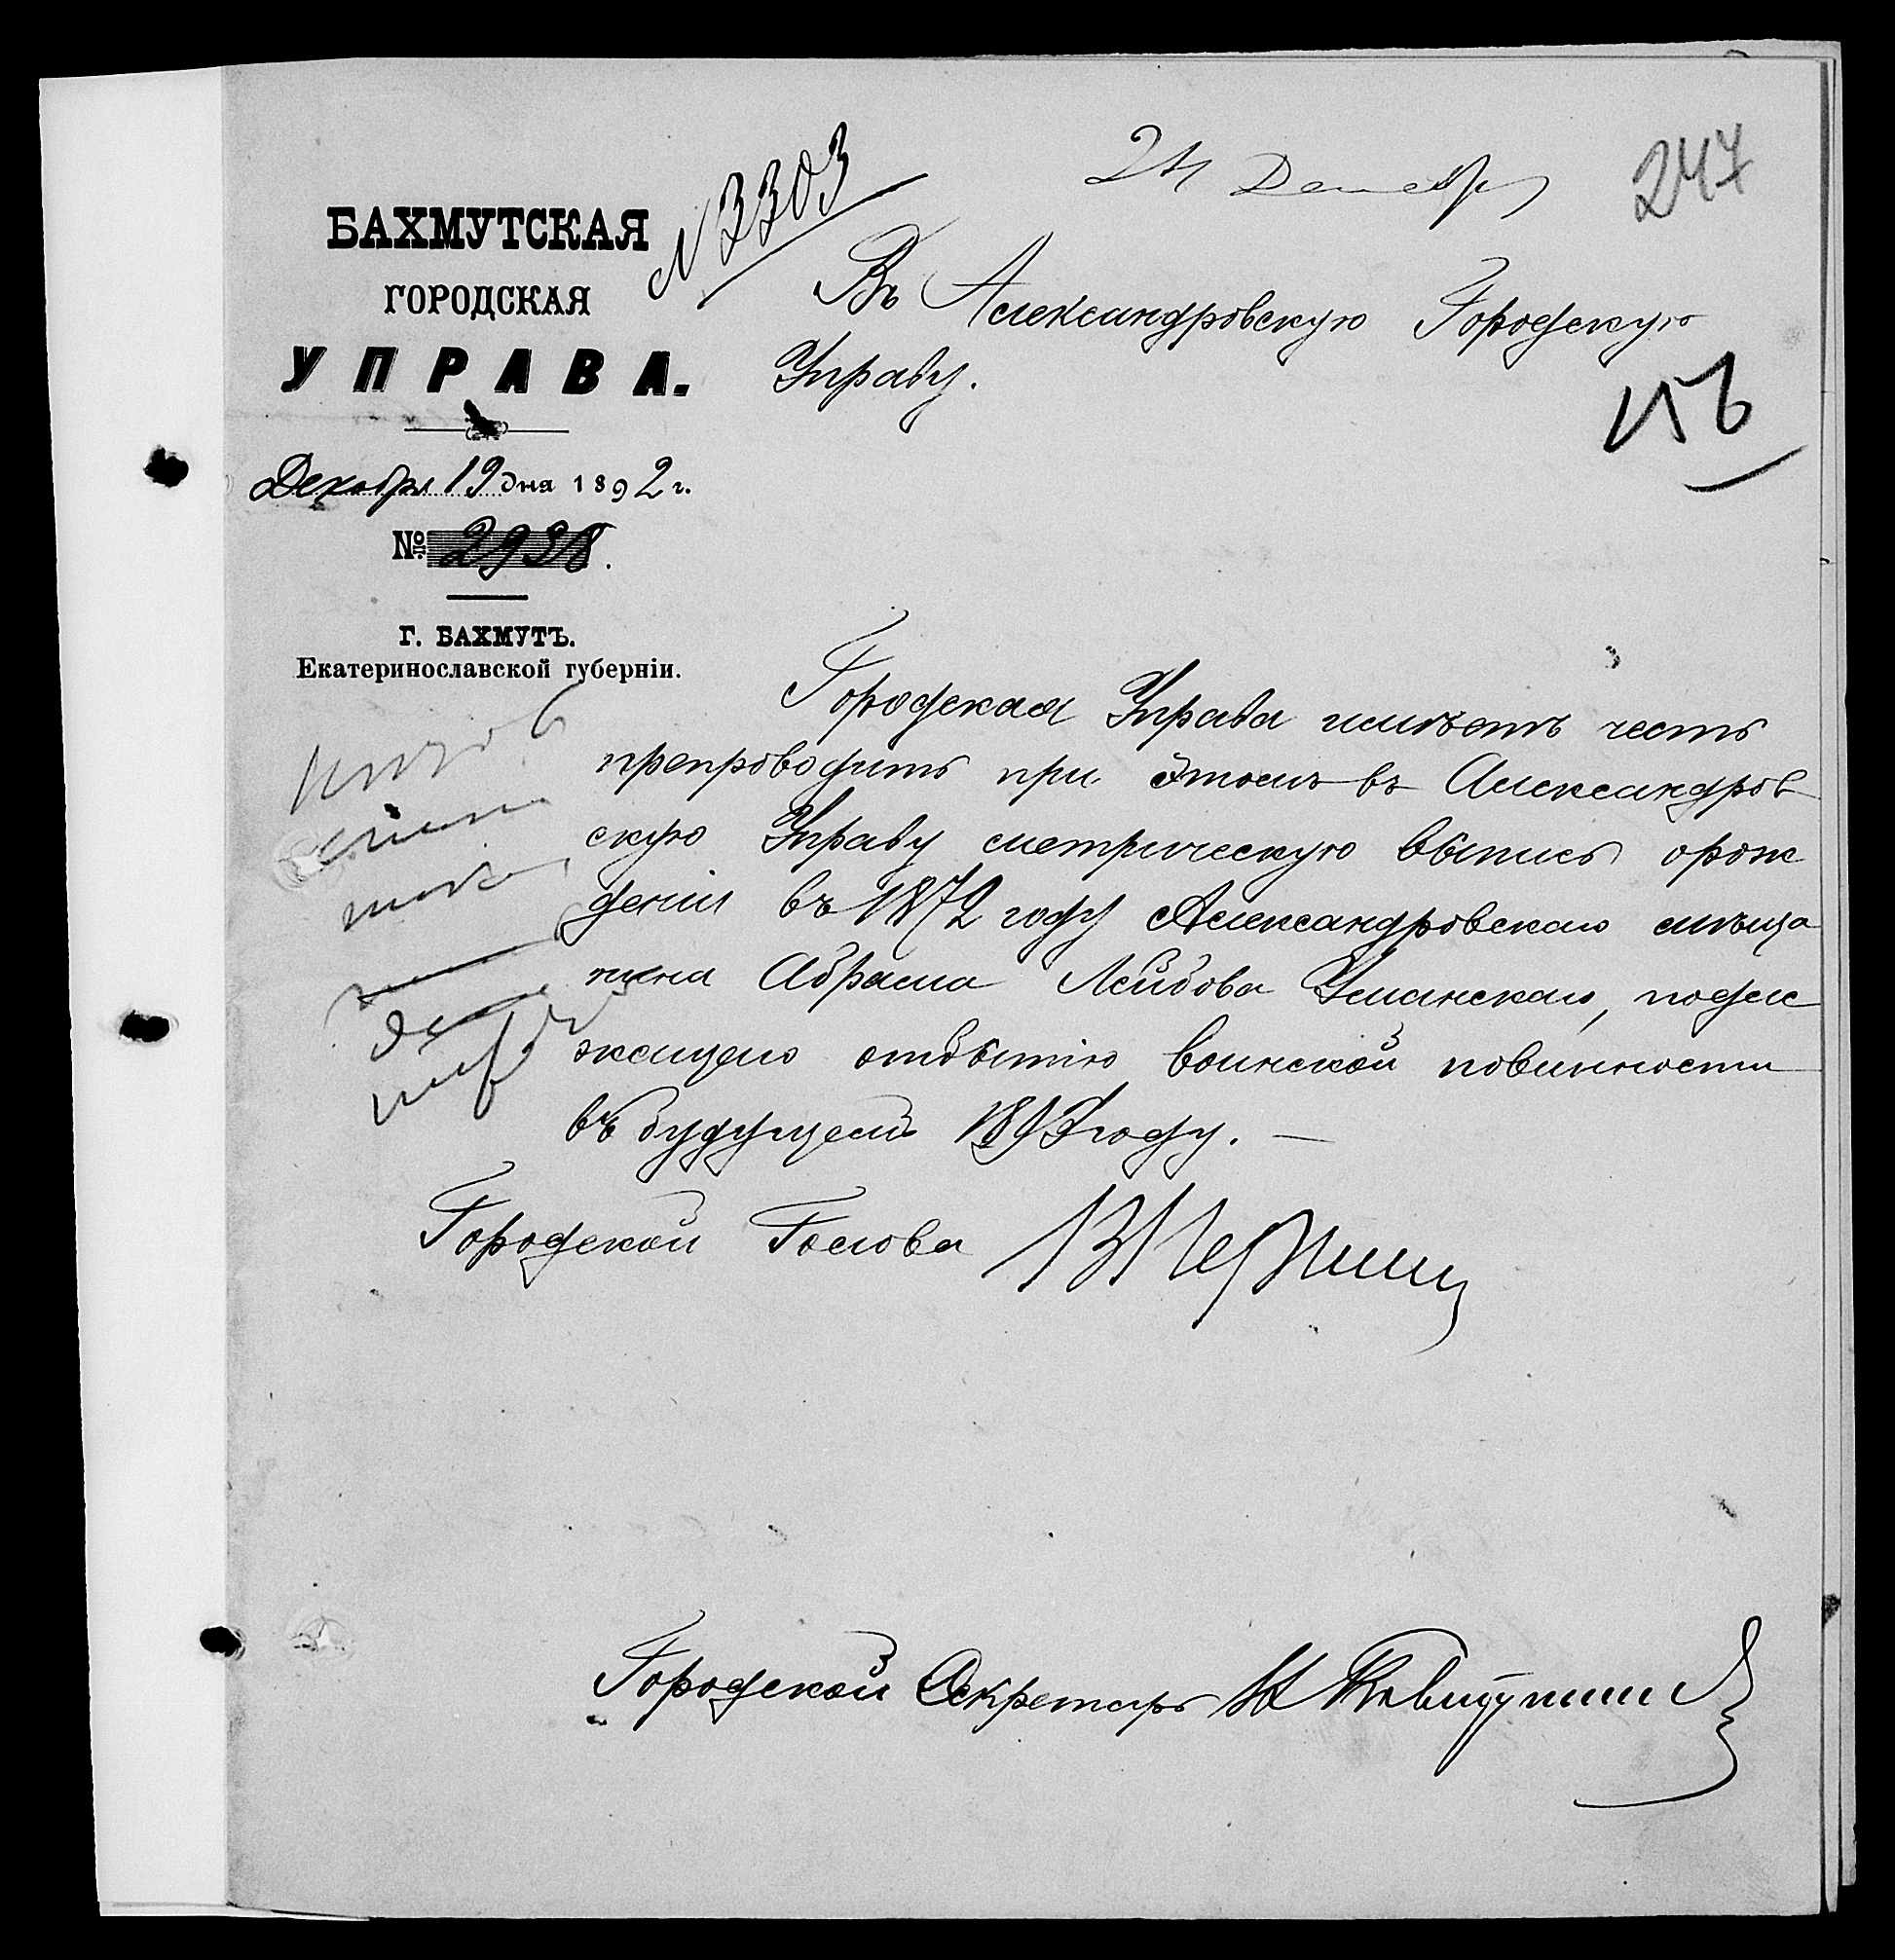 24 Декабря
247
№ 3303
БАХМУТСКАЯ
ГОРОДСКАЯ
УПРАВА.
Декабря 19 дня 1892 г.
№ 2938.
Г. БАХМУТЪ.
Екатеринославской губерніи.
Въ Александровскую Городскую
Управу.
Городская Управа имѣетъ честь
препроводить при этомъ въ Александров
скую Управу метрическую выпись о рож
деніи въ 1872 году Александровскаго мѣща
нина Абрама Лейбова Уманскаго, подле
жащаго отбытію воинской повинности
въ будущемъ 1893 году. —
Городской Голова
Городской Секретарь